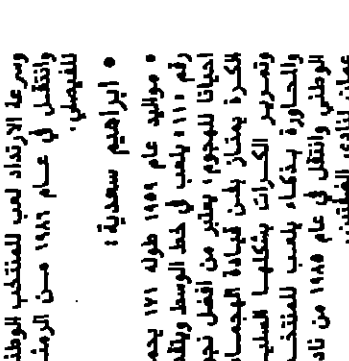 وسرعة الارتداد لعب للمنتخب الوطن
وانتقل في عام ١٩٨٩ من الرمث
للفيصلي.
• ابراهيم سعدية :
• مواليد عام ١٩٥٩ طوله ١٧١ يحم
رقم «١١» يلعب في خط الوسط ويتقد
احيانا للهجوم، يعتبر من افضل نجو
الكرة يمتاز بفن قيادة الهجما
وتمرير الكرات بشكلها السلي
والمحاورة بذكاء يلعب للمنتخ
الوطني وانتقل في عام ١٩٨٥ من نا
عمان لنادي